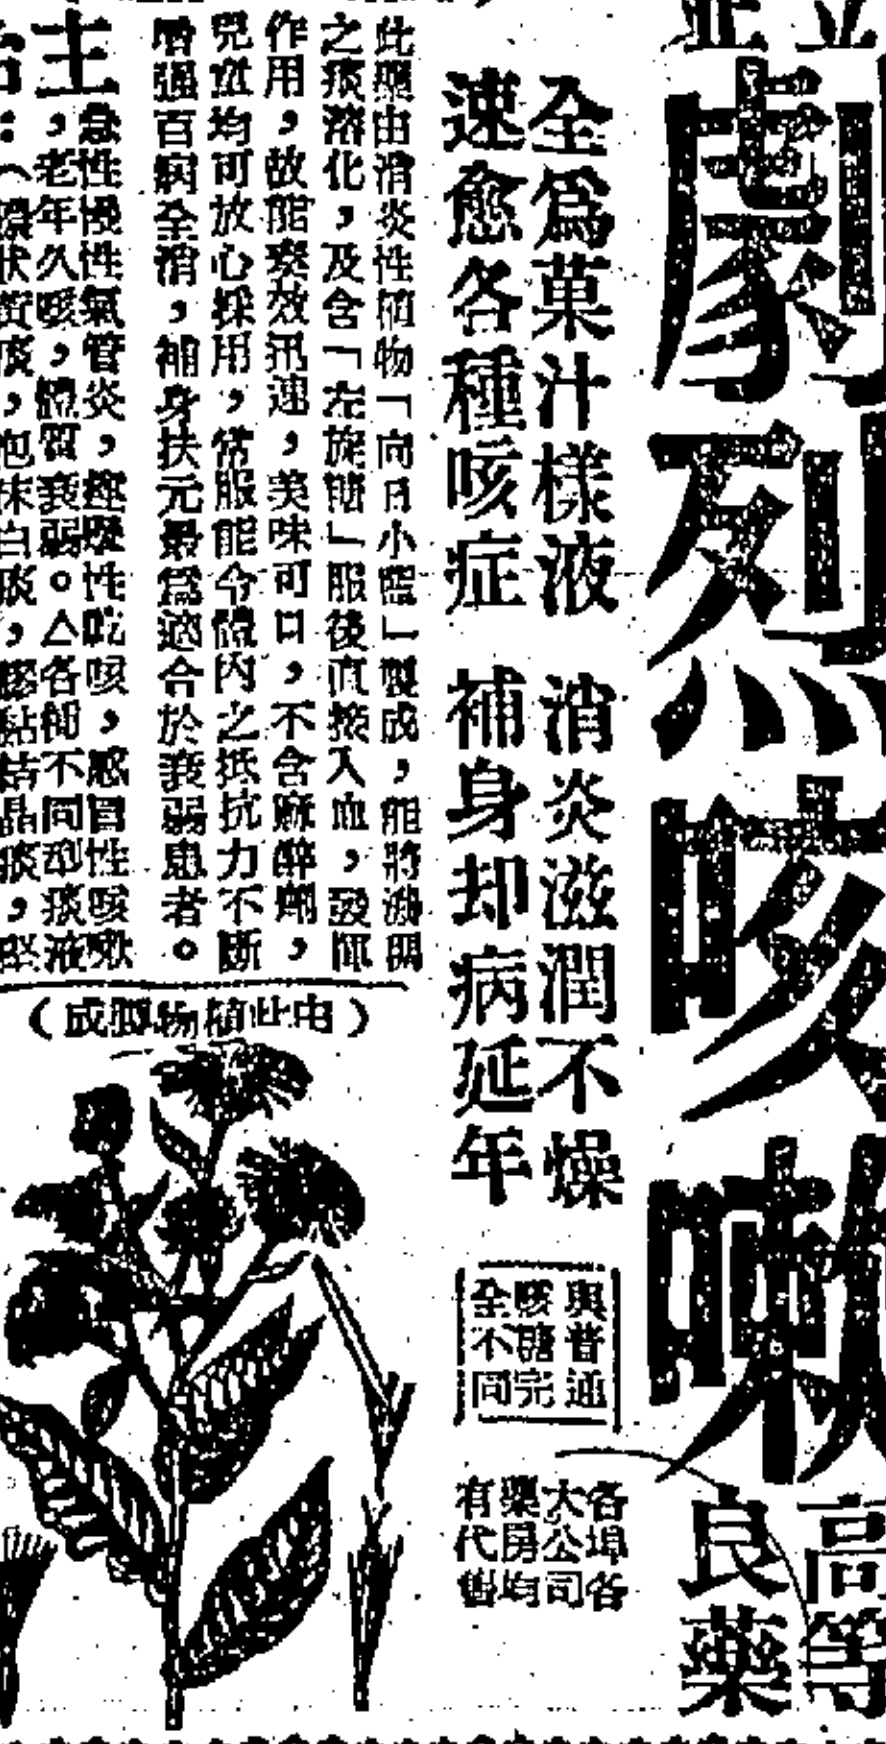 劇烈咳嗽
高等
良藥
全爲菓汁樣液 消炎滋潤不燥
速愈各種咳症 補身却病延年
與普通
咳糖完
全不同
各埠各
大公司
藥房均
有代售
此藥由消炎性植物「向日小藍」製成，能將濃稠
之痰溶化，及含「左旋糖」服後直接入血，發揮
作用，故能奏效迅速，美味可口，不含麻醉劑，
兒童均可放心採用，常服能令體內之抵抗力不斷
增强百病全消，補身扶元最爲適合於衰弱患者。
主
急性慢性氣管炎，痙攣性吃咳，感冒性咳嗽
，老年久咳，體質衰弱。△各種不同型痰液
狀黃痰，泡沫白痰，膠黏結晶痰，
（成製物植此由）